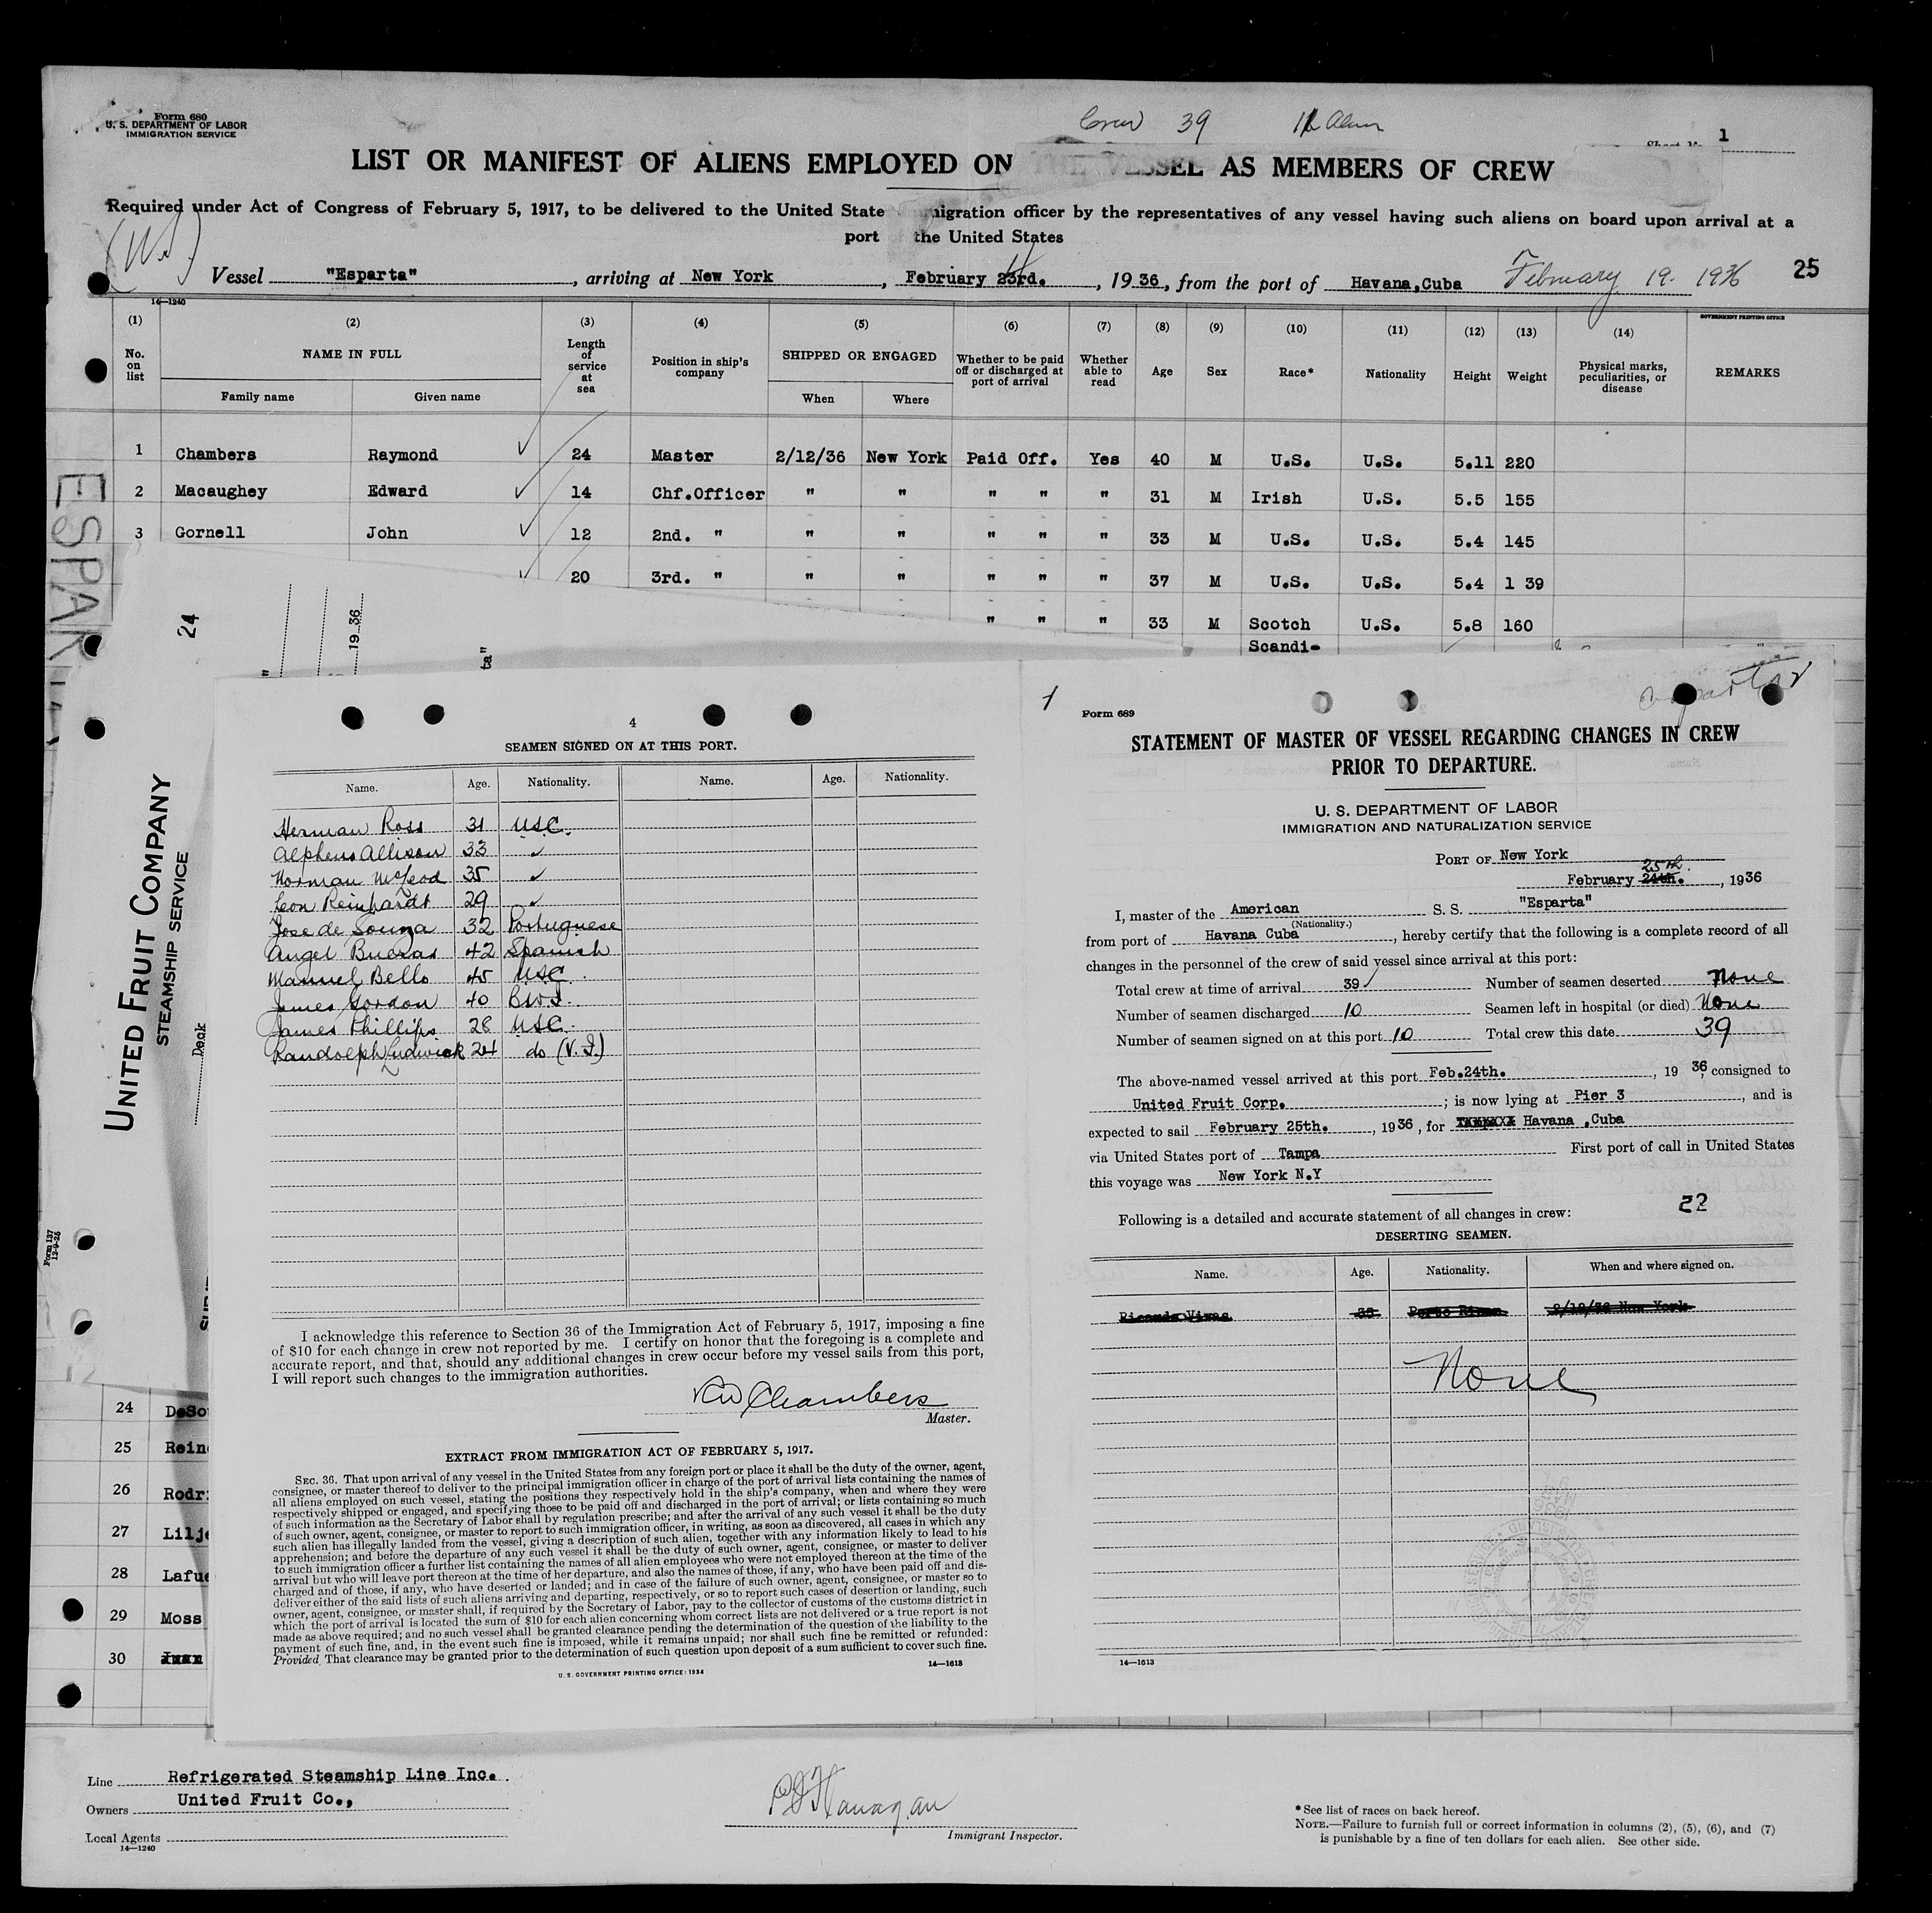 Form 680
U. S. DEPARTMENT OF LABOR
IMMIGRATION SERVICE
Crew 39
1
LIST OR MANIFEST OF ALIENS EMPLOYED ON THE VESSEL AS MEMBERS OF CREW
Required under Act of Congress of February 5, 1917, to be delivered to the United State migration officer by the representatives of any vessel having such aliens on board upon arrival at a
port of the United States
Vessel "Esparta", arriving at New York, February 23rd., 1936, from the port of Havana,Cuba February 19. 1936
25
14—1240
GOVERNMENT PRINTING OFFICE
(1) (2) (3) (4) (5) (6) (7) (8) (9) (10) (11) (12) (13) (14)
No. on list NAME IN FULL Length of service at sea Position in ship's company SHIPPED OR ENGAGED Whether to be paid off or discharged at port of arrival Whether able to read Age Sex Race* Nationality Height Weight Physical marks, peculiarities, or disease REMARKS
Family name Given name When Where
1 Chambers Raymond 24 Master 2/12/36 New York Paid Off. Yes 40 M U.S. U.S. 5.11 220
2 Macaughey Edward 14 Chf.Officer " " " " " 31 M Irish U.S. 5.5 155
3 Gornell John 12 2nd. " " " " " " 33 M U.S. U.S. 5.4 145
20 3rd. " " " " " " 37 M U.S. U.S. 5.4 1 39
" " " 33 M Scotch U.S. 5.8 160
Scandi-
ESPAR
24
19 36
ta"
UNITED FRUIT COMPANY
STEAMSHIP SERVICE
Deck
Form 137
12-9-25
4
SEAMEN SIGNED ON AT THIS PORT.
Name. Age. Nationality. Name. Age. Nationality.
Herman Ross 31 USC.
Alpheus Allison 33 ✓
Norman McLeod 35 ✓
Leon Reinhardt 29 ✓
Jose de Souza 32 Portuguese
Angel Buezas 42 Spanish
Manuel Bello 45 USC.
James Gordon 40 B.W.I.
James Phillips 28 USC.
Randolph Ludwick 24 do (V.I.)
I acknowledge this reference to Section 36 of the Immigration Act of February 5, 1917, imposing a fine
of $10 for each change in crew not reported by me. I certify on honor that the foregoing is a complete and
accurate report, and that, should any additional changes in crew occur before my vessel sails from this port,
I will report such changes to the immigration authorities.
RW Chambers
Master.
EXTRACT FROM IMMIGRATION ACT OF FEBRUARY 5, 1917.
SEC. 36. That upon arrival of any vessel in the United States from any foreign port or place it shall be the duty of the owner, agent,
consignee, or master thereof to deliver to the principal immigration officer in charge of the port of arrival lists containing the names of
all aliens employed on such vessel, stating the positions they respectively hold in the ship's company, when and where they were
respectively shipped or engaged, and specifying those to be paid off and discharged in the port of arrival; or lists containing so much
of such information as the Secretary of Labor shall by regulation prescribe; and after the arrival of any such vessel it shall be the duty
of such owner, agent, consignee, or master to report to such immigration officer, in writing, as soon as discovered, all cases in which any
such alien has illegally landed from the vessel, giving a description of such alien, together with any information likely to lead to his
apprehension; and before the departure of any such vessel it shall be the duty of such owner, agent, consignee, or master to deliver
to such immigration officer a further list containing the names of all alien employees who were not employed thereon at the time of the
arrival but who will leave port thereon at the time of her departure, and also the names of those, if any, who have been paid off and dis-
charged and of those, if any, who have deserted or landed; and in case of the failure of such owner, agent, consignee, or master so to
deliver either of the said lists of such aliens arriving and departing, respectively, or so to report such cases of desertion or landing, such
owner, agent, consignee, or master shall, if required by the Secretary of Labor, pay to the collector of customs of the customs district in
which the port of arrival is located the sum of $10 for each alien concerning whom correct lists are not delivered or a true report is not
made as above required; and no such vessel shall be granted clearance pending the determination of the question of the liability to the
payment of such fine, and, in the event such fine is imposed, while it remains unpaid; nor shall such fine be remitted or refunded:
Provided, That clearance may be granted prior to the determination of such question upon deposit of a sum sufficient to cover such fine.
U. S. GOVERNMENT PRINTING OFFICE: 1934
14—1613
1
Form 689
STATEMENT OF MASTER OF VESSEL REGARDING CHANGES IN CREW
PRIOR TO DEPARTURE.
U. S. DEPARTMENT OF LABOR
IMMIGRATION AND NATURALIZATION SERVICE
PORT OF New York
25th.
February 24th., 1936
I, master of the American S. S. "Esparta"
(Nationality.)
from port of Havana Cuba, hereby certify that the following is a complete record of all
changes in the personnel of the crew of said vessel since arrival at this port:
Total crew at time of arrival 39 Number of seamen deserted None
Number of seamen discharged 10 Seamen left in hospital (or died) None
Number of seamen signed on at this port 10 Total crew this date 39
The above-named vessel arrived at this port Feb.24th., 19 36, consigned to
United Fruit Corp.; is now lying at Pier 3, and is
expected to sail February 25th., 1936, for Havana ,Cuba
via United States port of Tampa First port of call in United States
this voyage was New York N.Y
22
Following is a detailed and accurate statement of all changes in crew:
DESERTING SEAMEN.
Name. Age. Nationality. When and where signed on.
Ricardo Vivas 35 Porto Rican 2/12/36 New York
None
14—1613
24 DeSo
25 Rein
26 Rodr
27 Lilj
28 Lafu
29 Moss
30 Juan
Line Refrigerated Steamship Line Inc.
Owners United Fruit Co.,
Local Agents
14—1240
Immigrant Inspector.
*See list of races on back hereof.
NOTE.—Failure to furnish full or correct information in columns (2), (5), (6), and (7)
is punishable by a fine of ten dollars for each alien. See other side.